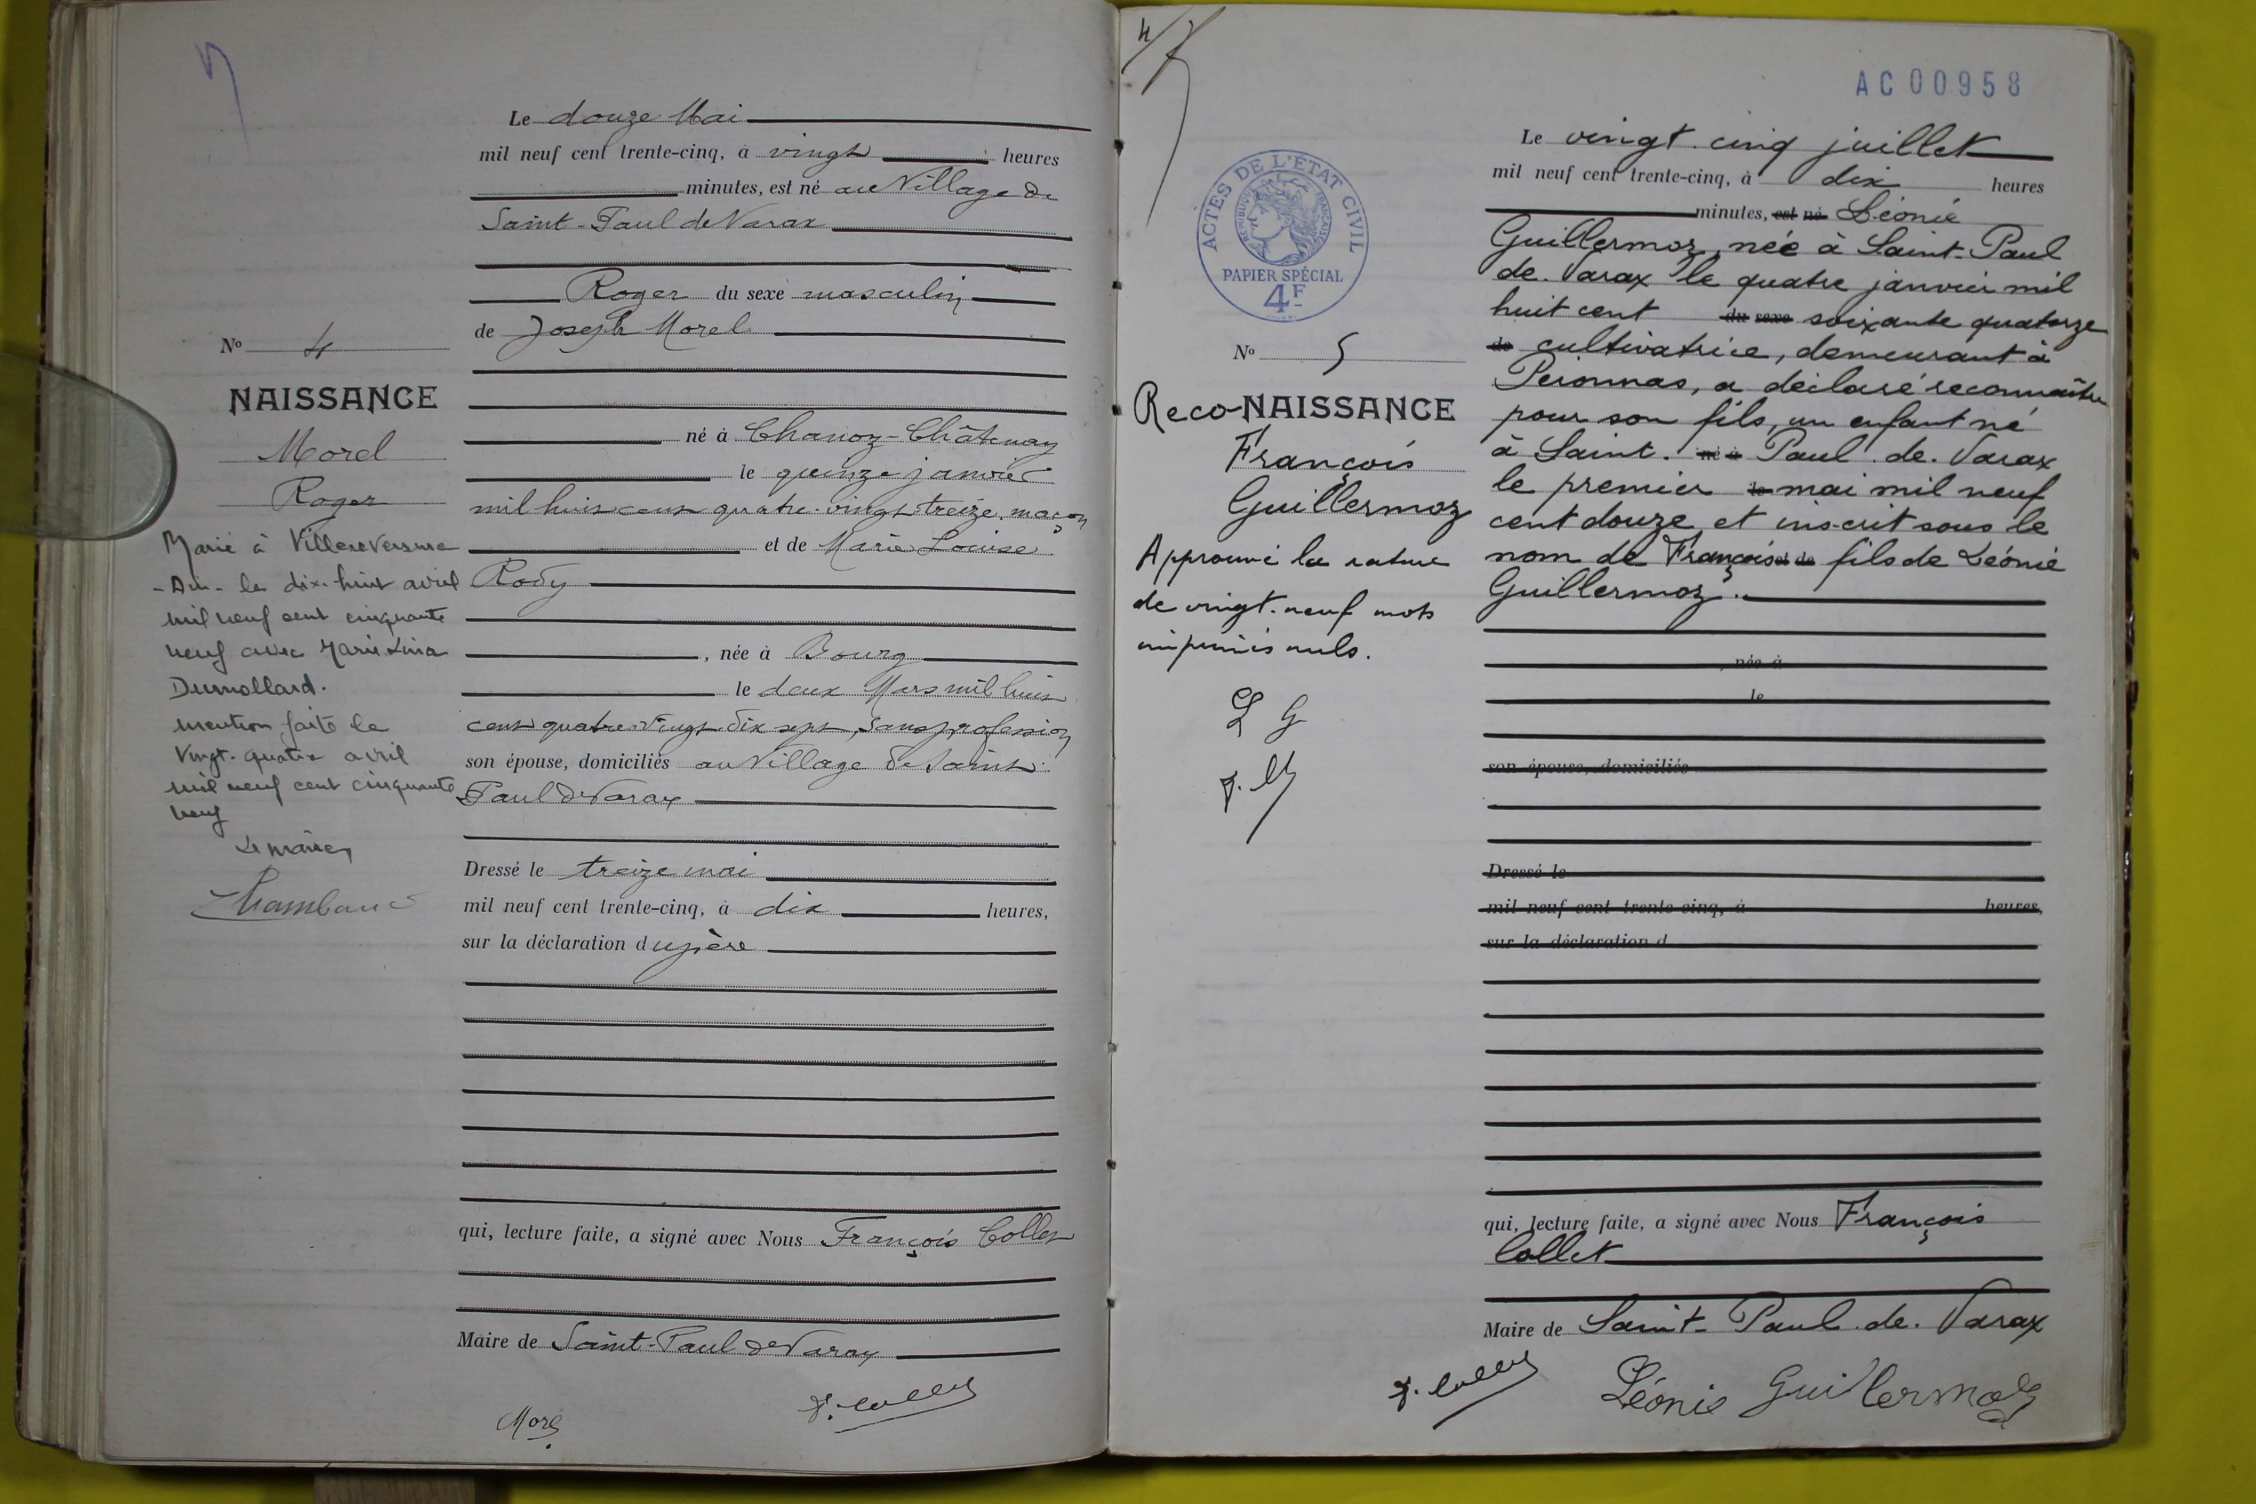 Le douze Mai
mil neuf cent trente-cinq, à vingt heures
minutes, est né au Village de
Saint-Paul de Varax
Roger du sexe masculin
de Joseph Morel
né à Chanoz-Châtenay
le quinze janvier
mil huit cent quatre-vingt treize, maçon
et de Marie Louise
Rody
, née à Bourg
le deux Mars mil huit
cent quatre vingt dix sept, sans profession
son épouse, domiciliés au Village de Saint-
Paul de Varax
Dressé le treize mai
mil neuf cent trente-cinq, à dix heures,
sur la déclaration du père
qui, lecture faite, a signé avec Nous François Collet
Maire de Saint-Paul de Varax
Morel
F. Collet
N° 4
NAISSANCE
Morel
Roger
Marié à Villereversure
- Ain - le dix-huit avril
mil neuf cent cinquante
neuf avec Marie Lina
Dumollard.
mention faite le
Vingt-quatre avril
mil neuf cent cinquante
neuf
Le maire,
4
AC 00958
ACTES DE L'ÉTAT CIVIL
RÉPUBLIQUE FRANÇAISE
PAPIER SPÉCIAL
4F
N° 5
Reco-NAISSANCE
François
Guillermoz
Approuvé la rature
de vingt-neuf mots
imprimés nuls.
L G
F. C
Le vingt-cinq juillet
mil neuf cent trente-cinq, à dix heures
minutes, est né Léonie
Guillermoz, née à Saint-Paul
de-Varax le quatre janvier mil
huit cent du sexe soixante quatorze
de cultivatrice, demeurant à
Péronnas, a déclaré reconnaître
pour son fils, un enfant né
à Saint- né à Paul-de-Varax
le premier le mai mil neuf
cent douze et inscrit sous le
nom de François et de fils de Léonie
Guillermoz.
, née à
le
son épouse, domiciliés
Dressé le
mil neuf cent trente-cinq, à heures,
sur la déclaration d
qui, lecture faite, a signé avec Nous François
Collet
Maire de Saint-Paul-de-Varax
F. Collet
Léonie Guillermoz